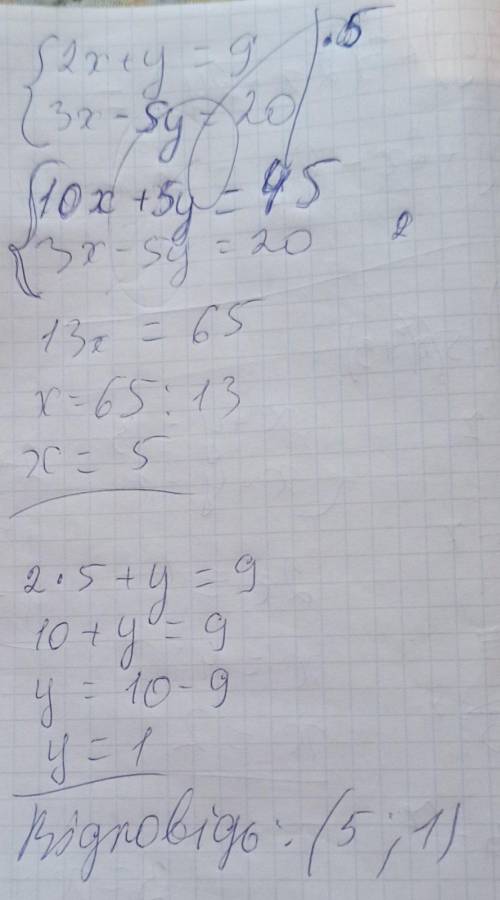 {2x+y = 9 |·5
3x - 5y = 20
{10x + 5y = 45
3x - 5y = 20
2
13x = 65
x = 65 : 13
x = 5
2·5 + y = 9
10 + y = 9
y = 10 - 9
y = 1
Відповідь: (5 ; 1)